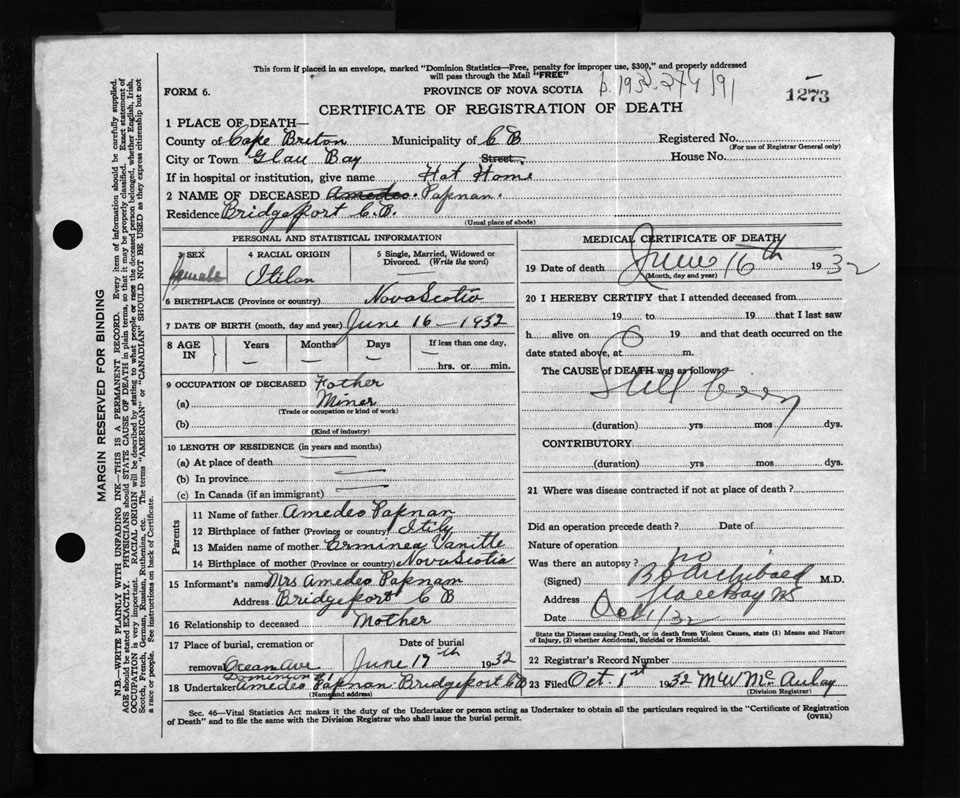 This form if placed in an envelope, marked "Dominion Statistics—Free, penalty for improper use, $300," and properly addressed
will pass through the Mail "FREE"
FORM 6.
PROVINCE OF NOVA SCOTIA
1273
CERTIFICATE OF REGISTRATION OF DEATH
1 PLACE OF DEATH—
County of Cape Briton Municipality of C B Registered No.
(For use of Registrar General only)
City or Town Glau Bay Street. House No.
If in hospital or institution, give name Hat Home
2 NAME OF DECEASED Amedeo. Papnan.
Residence Bridgeport C.B.
(Usual place of abode)
PERSONAL AND STATISTICAL INFORMATION
3 SEX 4 RACIAL ORIGIN 5 Single, Married, Widowed or Divorced. (Write the word)
female Itilan
6 BIRTHPLACE (Province or country) Nova Scotia
7 DATE OF BIRTH (month, day and year) June 16 - 1932
8 AGE IN Years Months Days If less than one day, hrs. or min.
9 OCCUPATION OF DECEASED Father
(a) Miner
(Trade or occupation or kind of work)
(b)
(Kind of industry)
10 LENGTH OF RESIDENCE (in years and months)
(a) At place of death
(b) In province
(c) In Canada (if an immigrant)
Parents
11 Name of father Amedeo Papnan
12 Birthplace of father (Province or country) Itily
13 Maiden name of mother Erminea Vanitte
14 Birthplace of mother (Province or country) Nova Scotia
15 Informant's name Mrs Amedeo Papnam
Address Bridgeport C B
16 Relationship to deceased Mother
17 Place of burial, cremation or removal Ocean Ave Date of burial June 17th 1932
Dominion
18 Undertaker Amedeo Papnan Bridgeport CB
(Name and address)
MEDICAL CERTIFICATE OF DEATH
19 Date of death June 16th 1932
(Month, day and year)
20 I HEREBY CERTIFY that I attended deceased from
19 to 19 that I last saw
h alive on 19 and that death occurred on the
date stated above, at m.
The CAUSE of DEATH was as follows
Still
(duration) yrs mos dys.
CONTRIBUTORY
(duration) yrs mos dys.
21 Where was disease contracted if not at place of death?
Did an operation precede death? Date of
Nature of operation
Was there an autopsy? no
(Signed) Archibald M.D.
Address Glace Bay NS
Date Oct 1/32
State the Disease causing Death, or in death from Violent Causes, state (1) Means and Nature
of Injury, (2) whether Accidental, Suicidal or Homicidal.
22 Registrar's Record Number
23 Filed Oct. 1st 1932 M W McAulay
(Division Registrar)
Sec. 46—Vital Statistics Act makes it the duty of the Undertaker or person acting as Undertaker to obtain all the particulars required in the "Certificate of Registration
of Death" and to file the same with the Division Registrar who shall issue the burial permit.
(OVER)
MARGIN RESERVED FOR BINDING
N.B.—WRITE PLAINLY WITH UNFADING INK—THIS IS A PERMANENT RECORD. Every item of information should be carefully supplied.
AGE should be stated EXACTLY. PHYSICIANS should STATE CAUSE OF DEATH in plain terms, so that it may be properly classified. Exact statement of
OCCUPATION is very important. RACIAL ORIGIN will be described by stating to what people or race the deceased person belonged, whether English, Irish,
Scotch, French, German, Russian, Ruthenian, etc. The terms "AMERICAN" or "CANADIAN" SHOULD NOT BE USED as they express citizenship but not
a race or people. See instructions on back of Certificate.